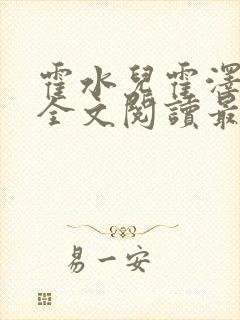 霍水兒霍澤
全文閱讀最
易一安